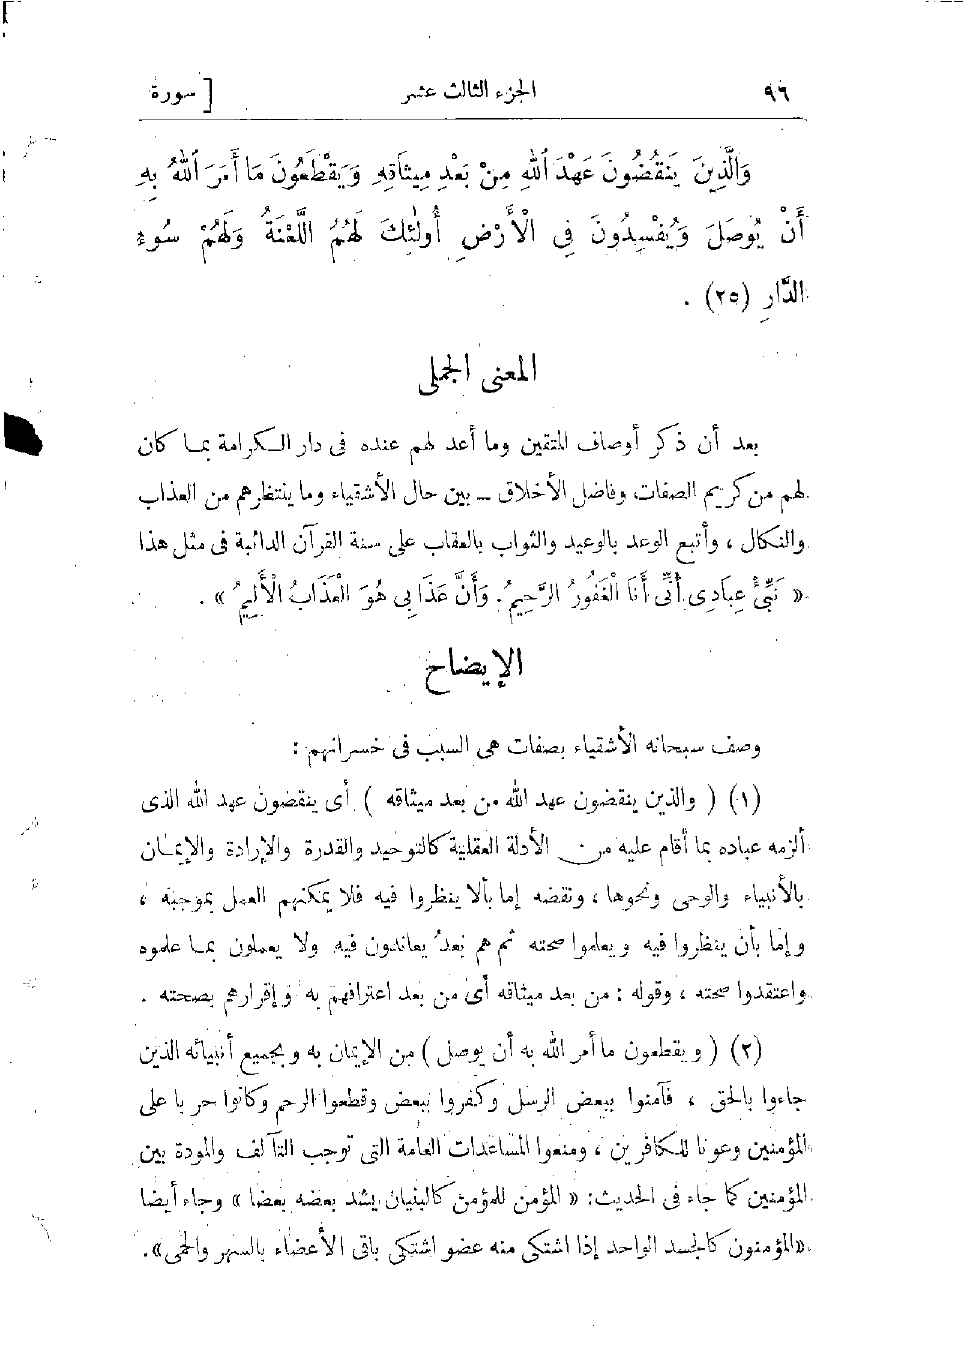 ٩٦ الجزء الثالث عشر [ سورة
وَالَّذِينَ يَنقُضُونَ عَهْدَ ٱللهِ مِنْ بَعْدِ مِيثَاقِهِ وَيَقْطَعُونَ مَا أَمَرَ ٱللهُ بِهِ
أَنْ يُوصَلَ وَيُفْسِدُونَ فِى الْأَرْضِ أُولٰئِكَ لَهُمُ اللَّعْنَةُ وَلَهُمْ سُوءُ
الدَّارِ (٢٥) .
المعنى الجملى
بعد أن ذكر أوصاف المتقين وما أعد لهم عنده فى دار الكرامة بما كان
لهم من كريم الصفات وفاضل الأخلاق ــ بين حال الأشقياء وما ينتظرهم من العذاب
والنكال ، وأتبع الوعد بالوعيد والثواب بالعقاب على سنة القرآن الدائبة فى مثل هذا
« نَبِّئْ عِبَادِى أَنِّى أَنَا الْغَفُورُ الرَّحِيمُ. وَأَنَّ عَذَابِى هُوَ الْعَذَابُ الْأَلِيمُ » .
الإيضاح
وصف سبحانه الأشقياء بصفات هى السبب فى خسرانهم :
(١) ( والذين ينقضون عهد الله من بعد ميثاقه ) أى ينقضون عهد الله الذى
ألزمه عباده بما أقام عليه من الأدلة العقلية كالتوحيد والقدرة والإرادة والإيمان
بالأنبياء والوحى ونحوها ، ونقضه إما بألا ينظروا فيه فلا يمكنهم العمل بموجبه ،
وإما بأن ينظروا فيه ويعلموا صحته ثم هم بَعدُ يعاندون فيه ولا يعملون بما علموه
واعتقدوا صحته ، وقوله : من بعد ميثاقه أى من بعد اعترافهم به وإقرارهم بصحته .
(٢) ( ويقطعون ما أمر الله به أن يوصل ) من الإيمان به وبجميع أنبيائه الذين
جاءوا بالحق ، فآمنوا ببعض الرسل وكفروا ببعض وقطعوا الرحم وكانوا حربا على
المؤمنين وعونا للكافرين ، ومنعوا المساعدات العامة التى توجب التآلف والمودة بين
المؤمنين كما جاء فى الحديث: « المؤمن للمؤمن كالبنيان يشد بعضه بعضا » وجاء أيضا
«المؤمنون كالجسد الواحد إذا اشتكى منه عضو اشتكى باقى الأعضاء بالسهر والحمى».